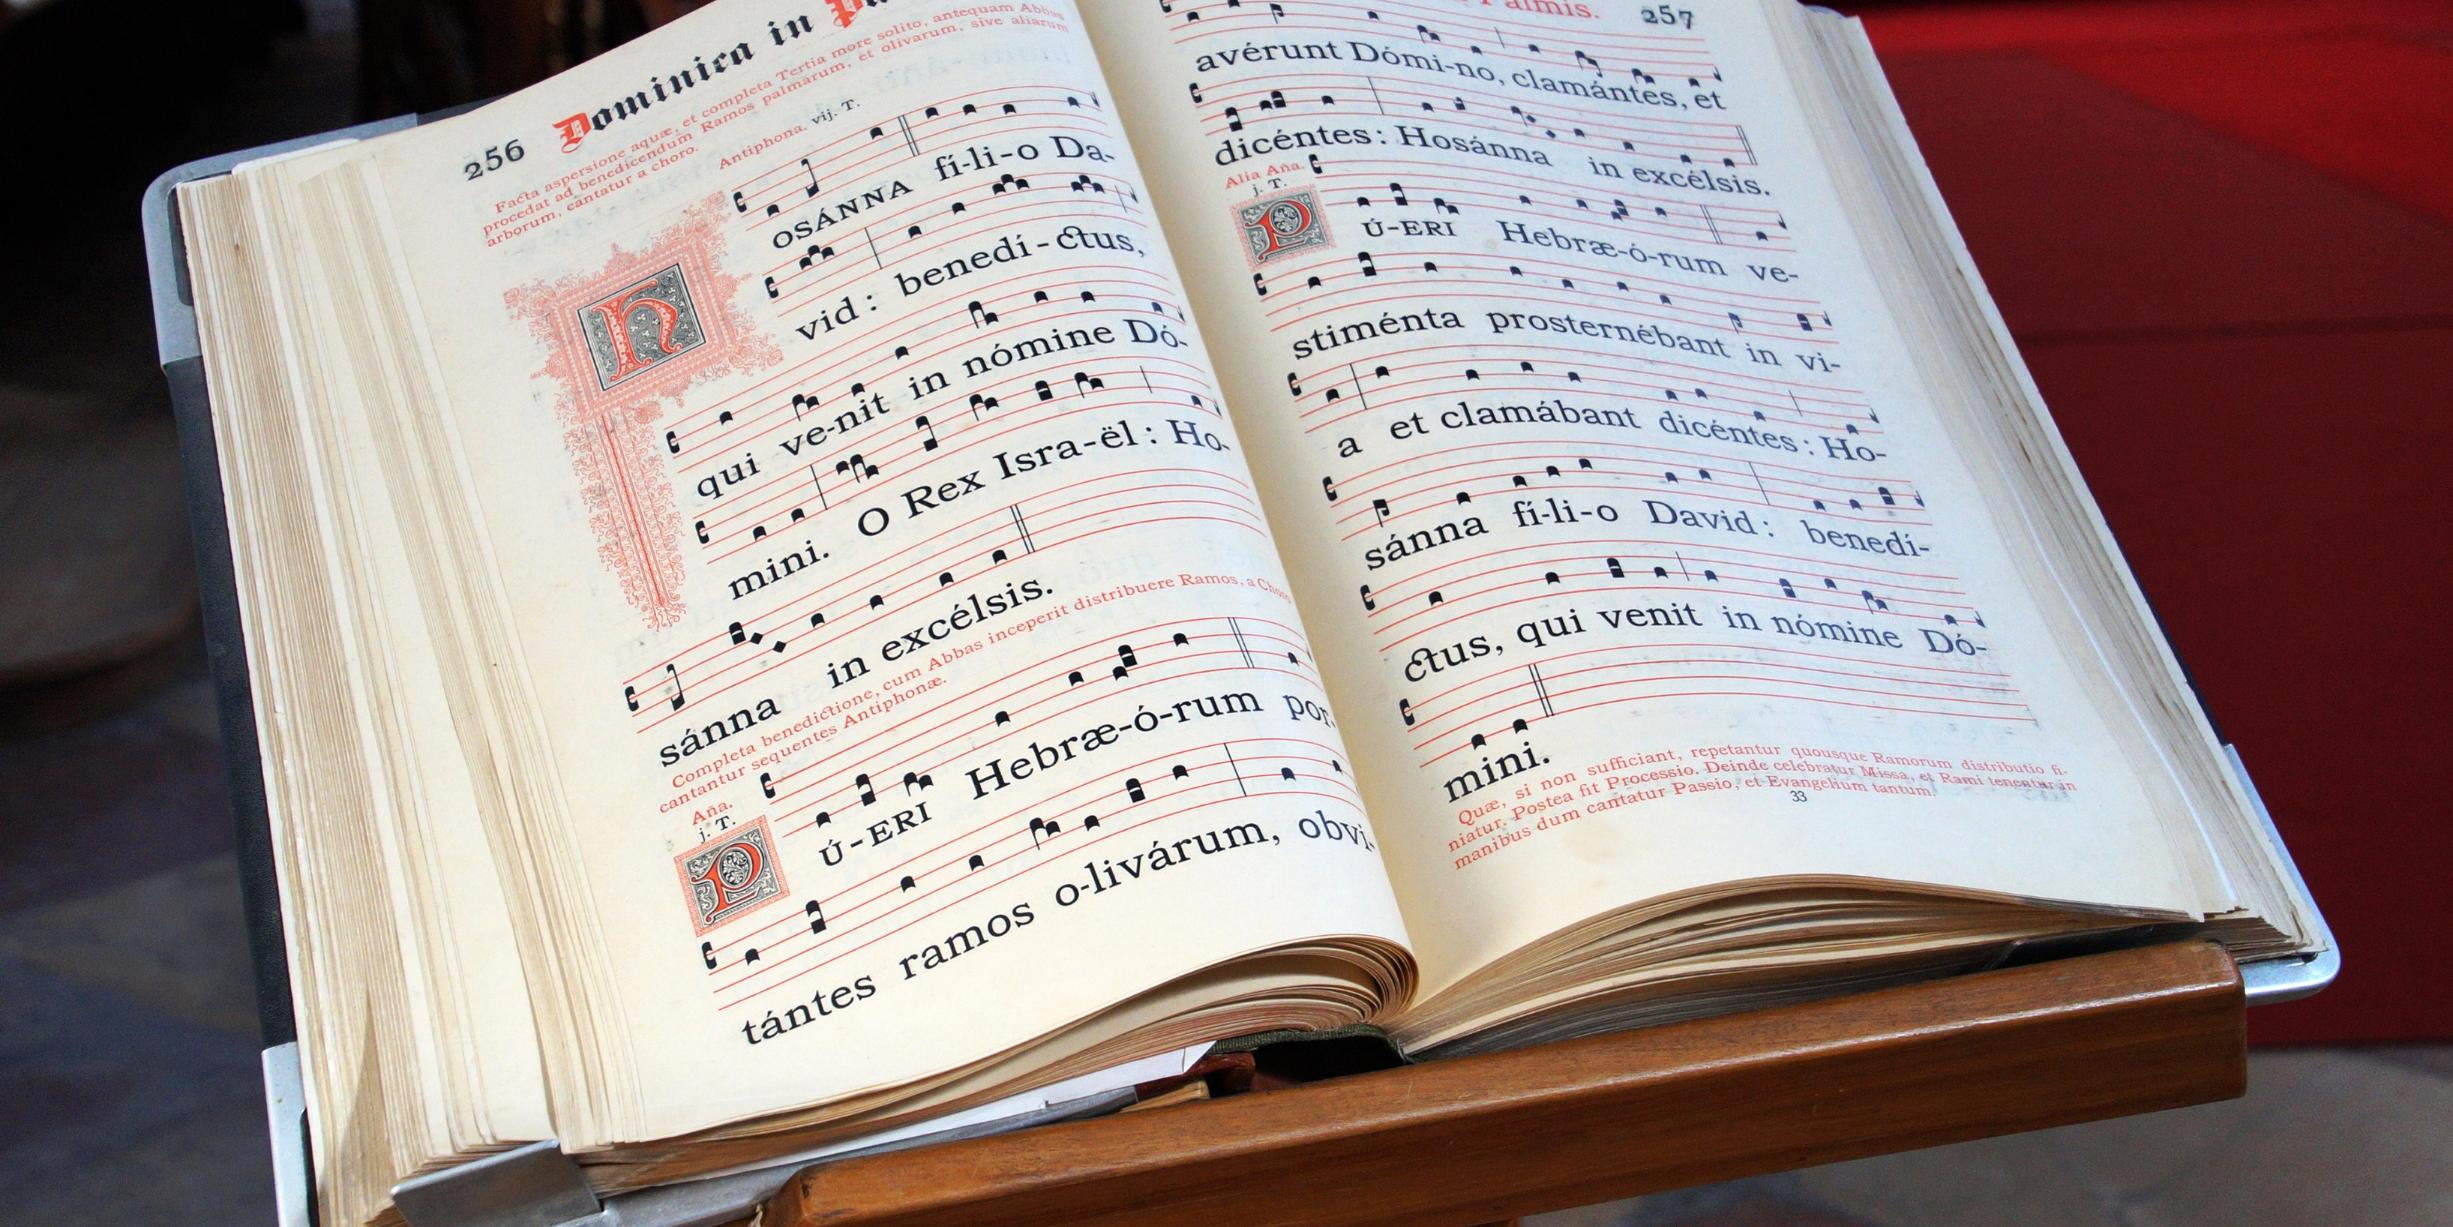 256
Dominica in
Facta aspersione aquæ, et completa Tertia more solito, antequam Abbas
procedat ad benedicendum Ramos palmarum, et olivarum, sive aliarum
arborum, cantatur a choro.
Antiphona. vij. T.
HOSÁNNA fí-li-o Da-
vid: benedí-ctus,
qui ve-nit in nómine Dó-
mini. O Rex Isra-ël: Ho-
sánna in excélsis.
Completa benedictione, cum Abbas inceperit distribuere Ramos, a Choro
cantantur sequentes Antiphonæ.
Aña.
j. T.
PÚ-ERI Hebræ-ó-rum por-
tántes ramos o-livárum, obvi-
Palmis. 257
avérunt Dómi-no, clamántes, et
dicéntes: Hosánna in excélsis.
Alia Aña.
j. T.
PÚ-ERI Hebræ-ó-rum ve-
stiménta prosternébant in vi-
a et clamábant dicéntes: Ho-
sánna fí-li-o David: benedí-
ctus, qui venit in nómine Dó-
mini.
Quæ, si non sufficiant, repetantur quousque Ramorum distributio fi-
niatur. Postea fit Processio. Deinde celebratur Missa, et Rami tenentur in
manibus dum cantatur Passio, et Evangelium tantum.
33